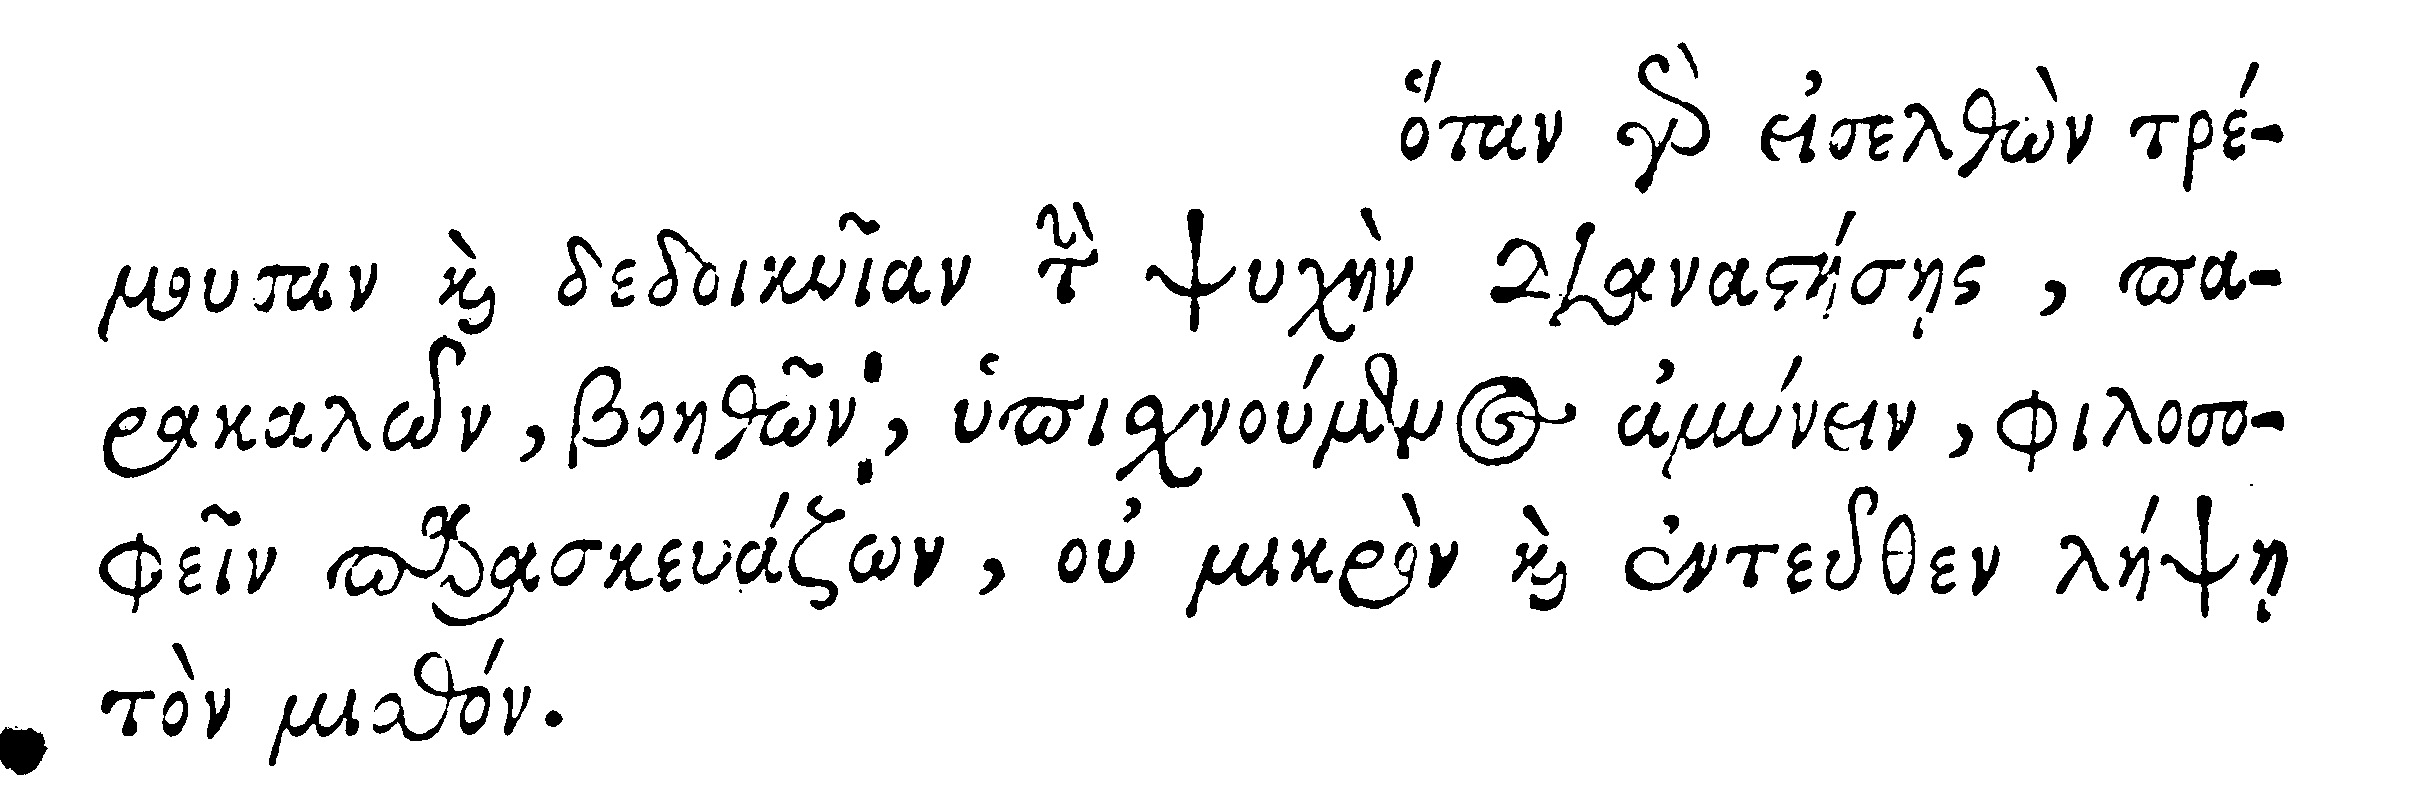 ὅταν γὰρ εἰσελθὼν τρέ-
μουσαν καὶ δεδοικυῖαν τὴν ψυχὴν διαναστήσῃς, πα-
ρακαλῶν, βοηθῶν, ὑπισχνούμενος ἀμύνειν, φιλοσο-
φεῖν παρασκευάζων, οὐ μικρὸν καὶ ἐντεῦθεν λήψῃ
τὸν μισθόν.